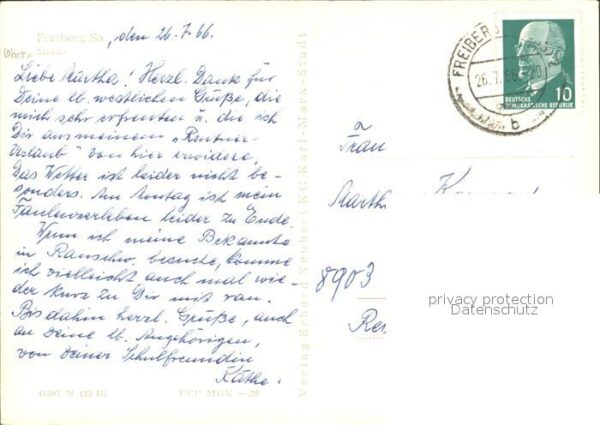 Freiberg Sa., den 26.7.66.
(Ober-
Markt
Liebe Martha! Herzl. Dank für
Deine lb. westlichen Grüße, die
mich sehr erfreuten u. die ich
Dir aus meinem „Rentner-
Urlaub" von hier erwidere.
Das Wetter ist leider nicht be-
sonders. Am Montag ist mein
Faulenzerleben leider zu Ende.
Wenn ich meine Bekannte
in Rauschw. besuche, komme
ich vielleicht auch mal wie-
der kurz zu Dir mit ran.
Bis dahin herzl. Grüße, auch
an Deine lb. Angehörigen,
von Deiner Schulfreundin
Käthe.
EVP MDN —.20
Verlag Erhard Neubert KG Karl-Marx-Stadt
FREIBERG
26.7.66
b
10
DEUTSCHE
DEMOKRATISCHE REPUBLIK
Frau
Martha
8903
privacy protection
Datenschutz